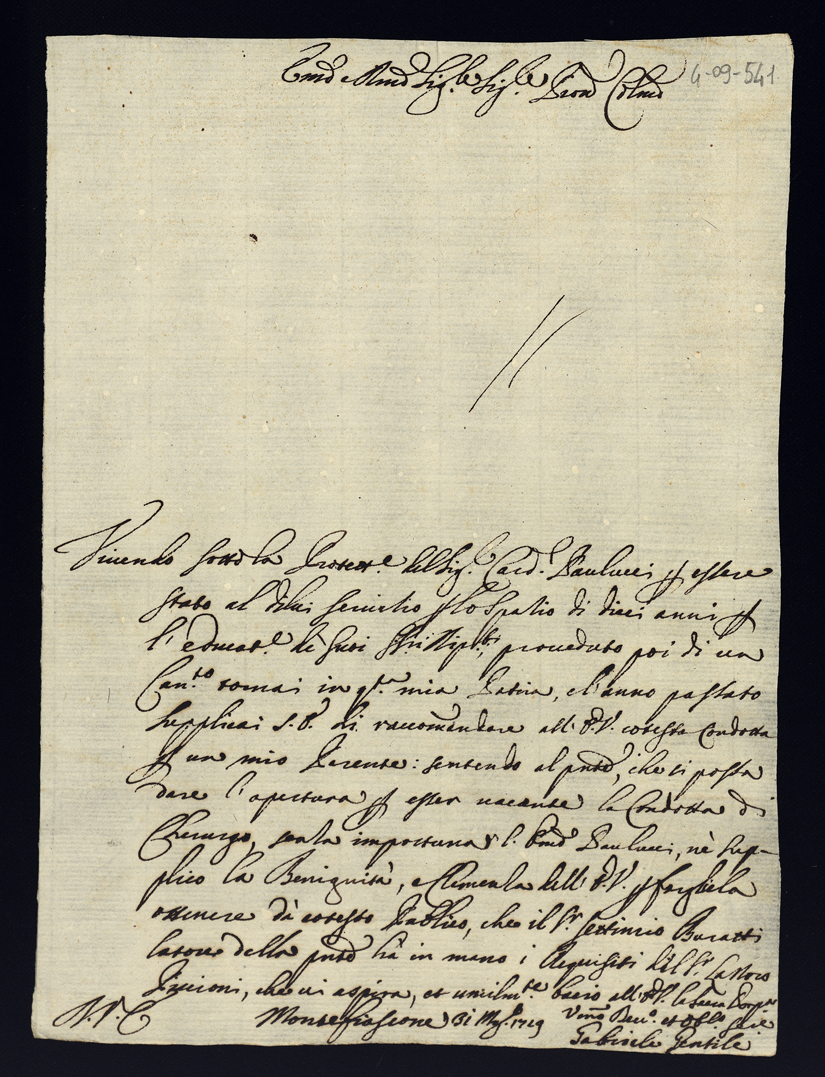 Em.o e Rmo Sig.re Sig.re Pron Colmo
4-09-541
Vivendo sotto la Protett.e del Sig.r Card.l Paulucci p essere
stato al di lui servitio p lo spatio di dieci anni p
l'educat.e de suoi Nipoti, proveduto poi di un
Can.to tornai in q.ta mia Patria, e l'anno passato
supplicai S.E. di raccomandare all'E.V. cotesta Condotta
p un mio Parente: sentendo al pnte, che si possa
dare l'apertura p esser vacante la Condotta di
Cherurgo, senza importunar l'Emo Paulucci, nè sup-
plico la Benignità, e Clemenza dell'E.V. p fargliela
ottenere dà cotesto Publico, che il Sr Settimio Buratti
lator della pnte hà in mano i Requisiti del Sr
che vi aspira, et umilm.te bacio all'E.V. la Sacra Porpora
N.V.C. Montefiascone 31 Mag.o 1719 Vmo Dev.o et Obblo Serre
Gabriele Gentile